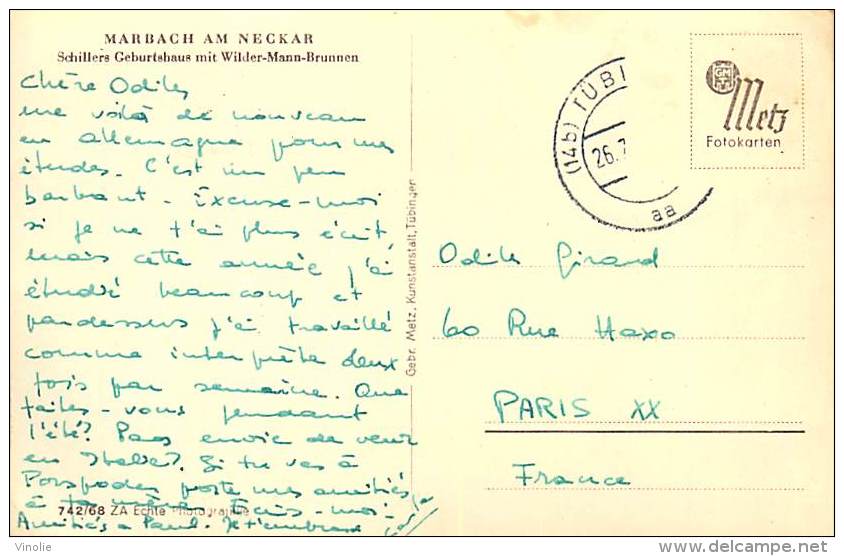 MARBACH AM NECKAR
Schillers Geburtshaus mit Wilder-Mann-Brunnen
Chère Odile,
me voilà de nouveau
en allemagne pour mes
études. C'est un peu
barbant. Excuse-moi
si je ne t'ai plus écrit,
mais cette année j'ai
étudié beaucoup et
pardessus j'ai travaillé
comme interprète deux
fois par semaine. Que
faites-vous pendant
l'été? Pas envie de venir
en Italie? Si tu vas à
porte mes amitiés
à ta mère. Ecris-moi.
Amitiés a Paul. Je t'embrasse
742/68 ZA Echte Photographie
Gebr. Metz, Kunstanstalt, Tübingen
(14b) TÜBI
26.7
aa
Metz
Fotokarten
Odile Girard
60 Rue Haxo
PARIS XX
France
Vinolie
delcampe.net